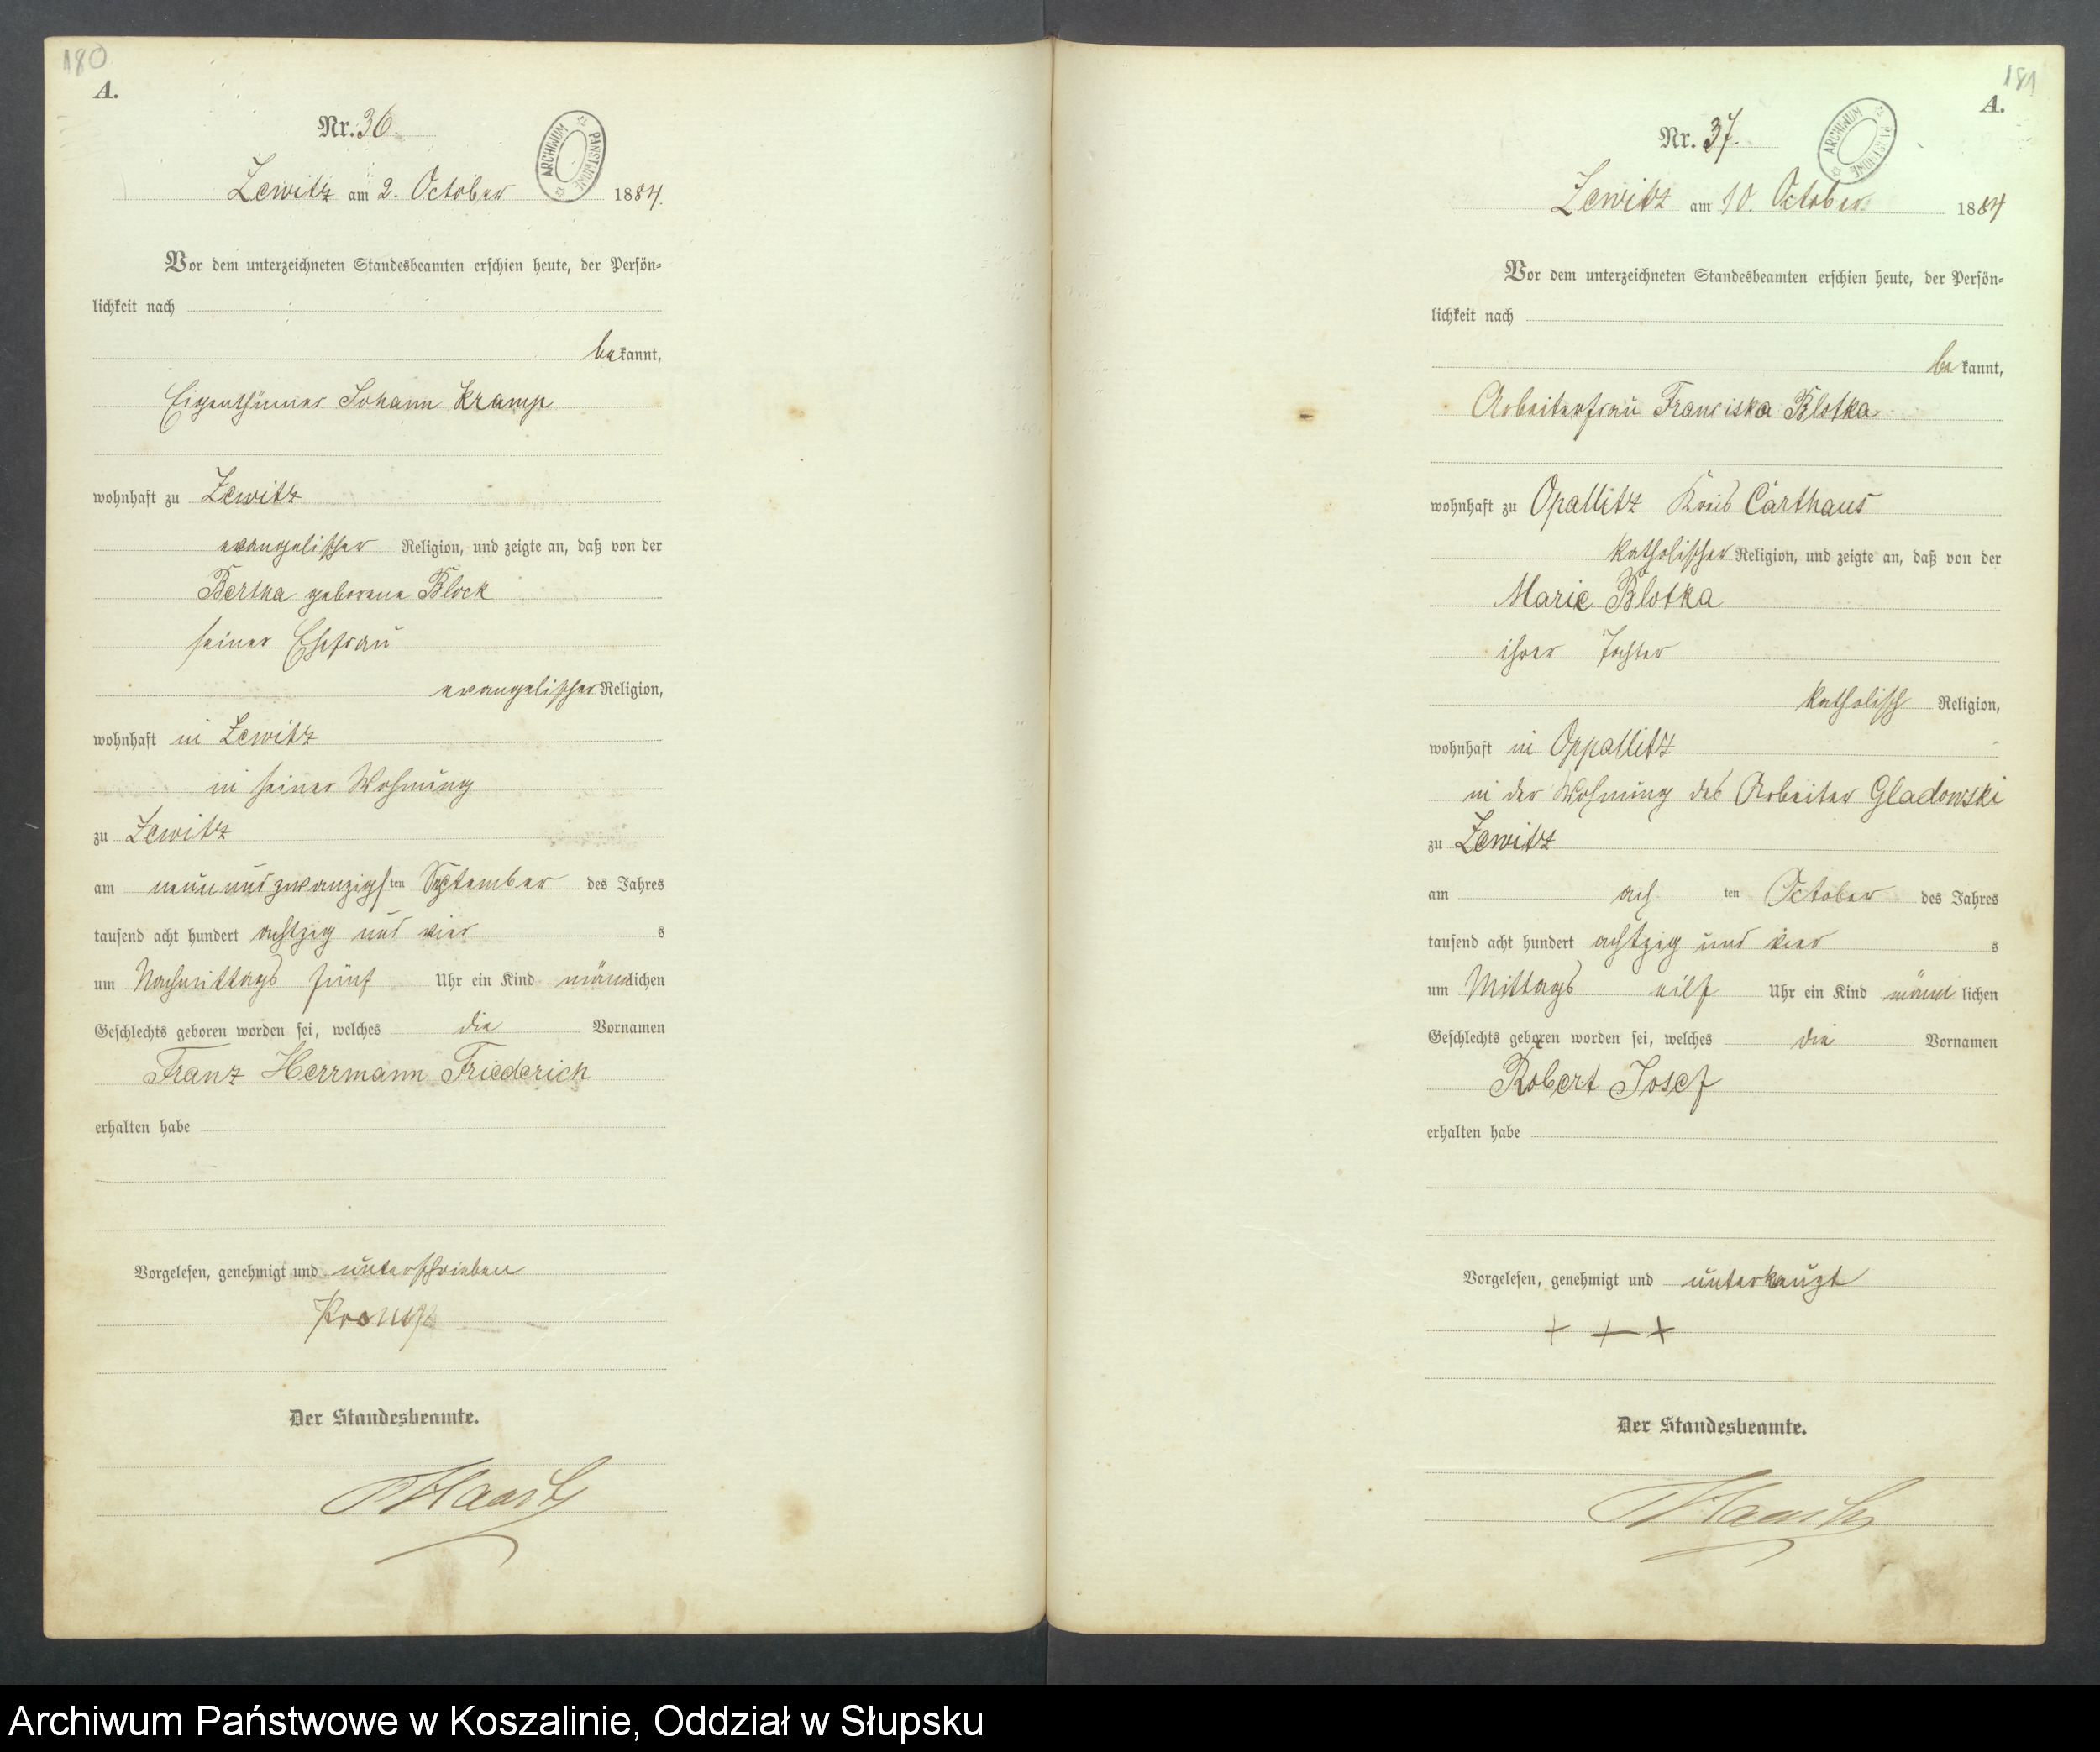 180
A.
Nr. 36.
ARCHIWUM PAŃSTWOWE
Zewitz am 2. October 1884.
Vor dem unterzeichneten Standesbeamten erschien heute, der Persön-
lichkeit nach
bekannt,
Eigenthümer Johann Kramp
wohnhaft zu Zewitz
evangelischer Religion, und zeigte an, daß von der
Bertha geborene Block
seiner Ehefrau
evangelischer Religion,
wohnhaft in Zewitz
in seiner Wohnung
zu Zewitz
am neunundzwanzigsten September des Jahres
tausend acht hundert achtzig und vier s
um Nachmittags fünf Uhr ein Kind männlichen
Geschlechts geboren worden sei, welches die Vornamen
Franz Herrmann Friederich
erhalten habe
Vorgelesen, genehmigt und unterschrieben
Kramp
Der Standesbeamte.
181
A.
Nr. 37.
ARCHIWUM PAŃSTWOWE
Zewitz am 10. October 1884
Vor dem unterzeichneten Standesbeamten erschien heute, der Persön-
lichkeit nach
bekannt,
Arbeiterfrau Franciska Blotka
wohnhaft zu Opallitz Kreis Carthaus
katholischer Religion, und zeigte an, daß von der
Marie Blotka
ihrer Tochter
katholisch Religion,
wohnhaft in Oppallitz
in der Wohnung des Arbeiter Gladowski
zu Zewitz
am ach ten October des Jahres
tausend acht hundert achtzig und vier s
um Mittags eilf Uhr ein Kind männlichen
Geschlechts geboren worden sei, welches die Vornamen
Robert Josef
erhalten habe
Vorgelesen, genehmigt und unterkreuzt
+ + +
Der Standesbeamte.
Archiwum Państwowe w Koszalinie, Oddział w Słupsku